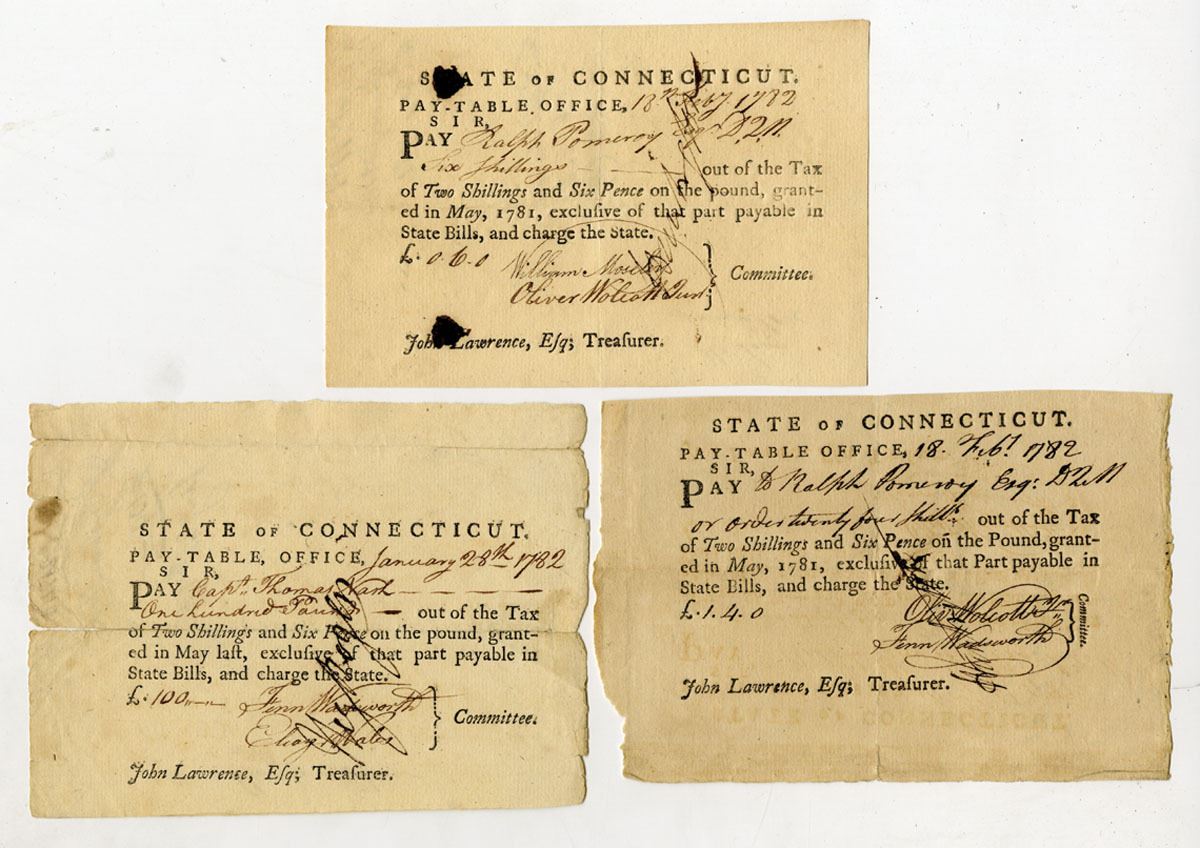 STATE OF CONNECTICUT.
PAY-TABLE OFFICE, 18th Feby 1782
SIR,
PAY Ralph Pomeroy Esqr D.Q.M.
Six shillings — — out of the Tax
of Two Shillings and Six Pence on the pound, grant-
ed in May, 1781, exclusive of that part payable in
State Bills, and charge the State.
£. 0. 6. 0
William Moseley
Oliver Wolcott Junr
Committee.
John Lawrence, Eſq; Treaſurer.
STATE OF CONNECTICUT.
PAY-TABLE, OFFICE, January 28th 1782
SIR,
PAY Capt. Thomas Nash — — — — —
One hundred Pounds — out of the Tax
of Two Shillings and Six Pence on the pound, grant-
ed in May laſt, excluſive of that part payable in
State Bills, and charge the State.
£. 100
Fenn Wadsworth
Eleazr Wales
Committee.
John Lawrence, Eſq; Treaſurer.
STATE OF CONNECTICUT.
PAY-TABLE OFFICE, 18. Feby 1782
SIR,
PAY to Ralph Pomeroy Esq: DQM
or order twenty four shills. out of the Tax
of Two Shillings and Six Pence on the Pound, grant-
ed in May, 1781, excluſive of that Part payable in
State Bills, and charge the State.
£. 1. 4. 0
Olivr Wolcott Jr
Fenn Wadsworth
Committee.
John Lawrence, Eſq; Treaſurer.